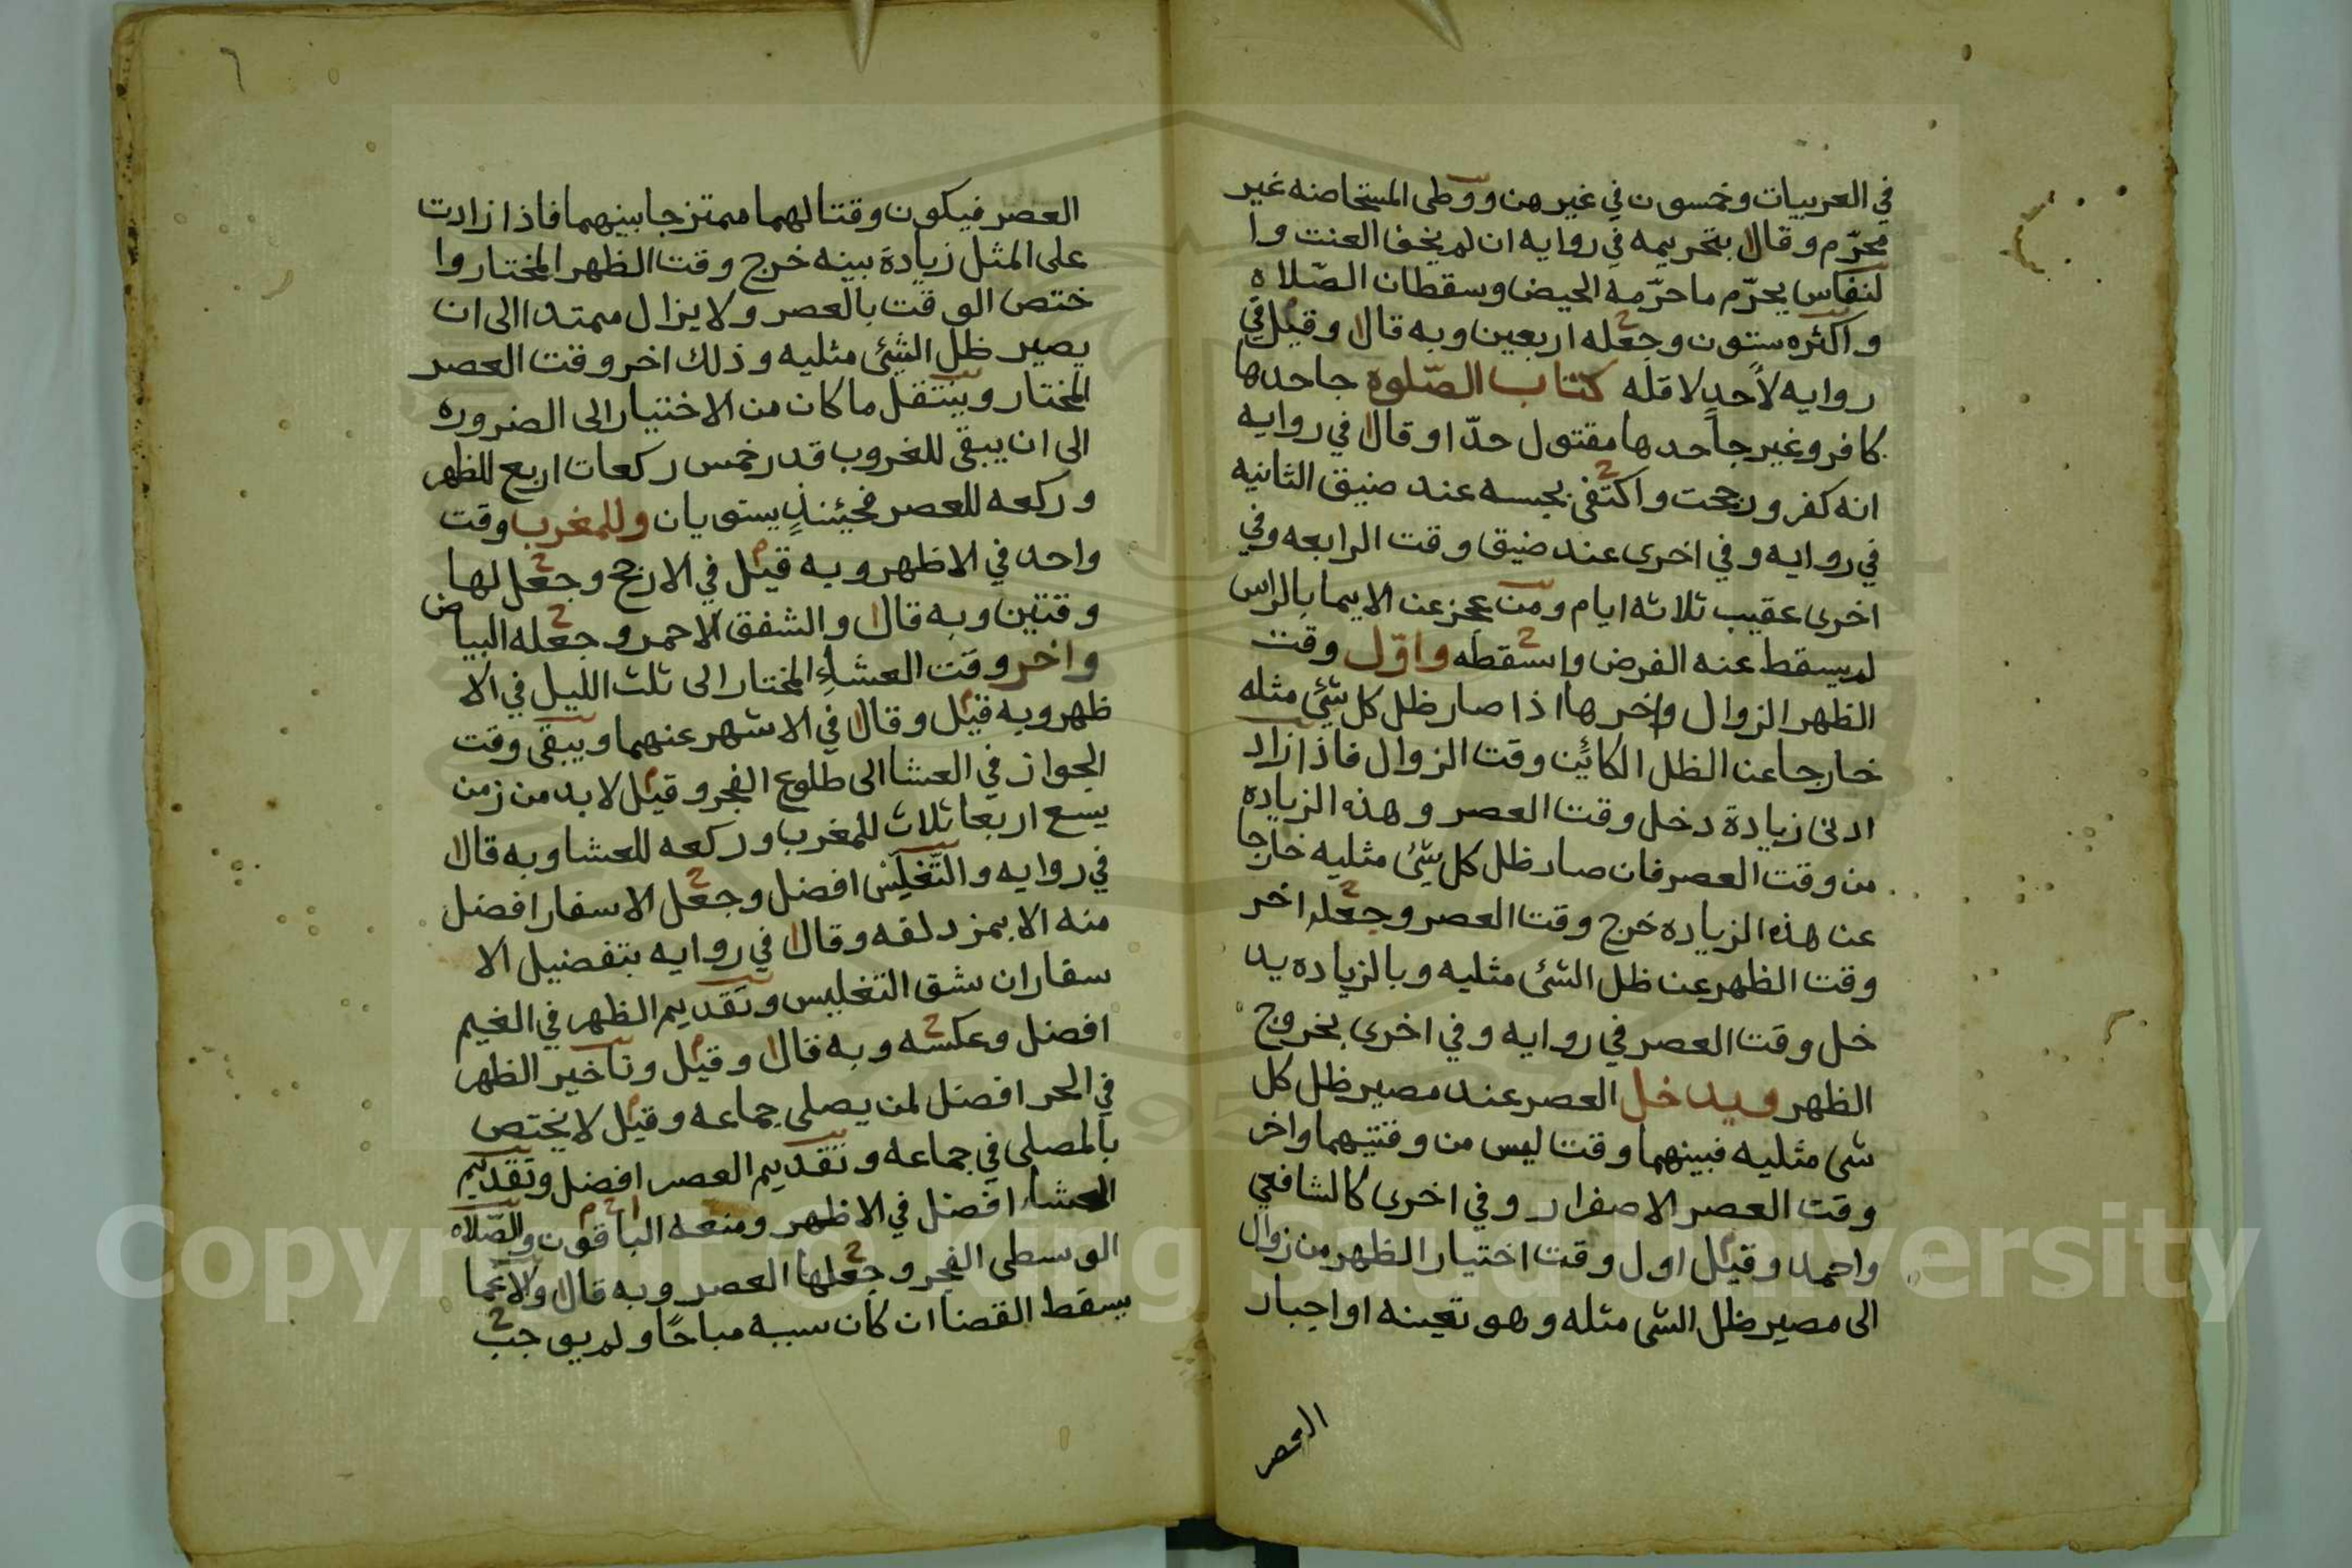 في العربيات وخمسون في غيرهن ووطى المستحاضنه غير
محرّم وقال بتحريمه في روايه ان لم يخف العنت وا
لنفاس يحرّم ما حرّمه الحيض وسقطان الصّلاه
واكثره ستون وجعله اربعين وبه قال وقيل في
روايه لاحدٍ لاقله كتاب الصّلوة جاحدها
كافر وغير جاحدها مقتول حدّا وقال في روايه
انه كفر ورجحت واكتفى بحبسه عند ضيق الثانيه
في روايه وفي اخرى عند ضيق وقت الرابعه وفي
اخرى عقيب ثلاثه ايام ومن عجز عن الايما بالراس
لم يسقط عنه الفرض واسقطه واوّل وقت
الظهر الزوال واخرها اذا صار ظل كل شئ مثله
خارجا عن الظل الكائن وقت الزوال فاذا زاد
ادنى زيادة دخل وقت العصر وهذه الزياده
من وقت العصر فان صار ظل كل شئ مثليه خارجا
عن هذه الزياده خرج وقت العصر وجعله اخر
وقت الظهر عن ظل الشئ مثليه وبالزياده يد
خل وقت العصر في روايه وفي اخرى بخروج
الظهر ويدخل العصر عند مصير ظل كل
شى مثليه فبينهما وقت ليس من وقتيهما واخر
وقت العصر الاصفرار وفي اخرى كالشافعي
واحمد وقيل اول وقت اختيار الظهر من زوال
الى مصير ظل الشى مثله وهو تعينه او اجبار
العصر
٦
العصر فيكون وقتا لهما ممتزجا بينهما فاذا زادت
على المثل زيادة بينه خرج وقت الظهر المختار وا
ختص الوقت بالعصر ولا يزال ممتدا الى ان
يصير ظل الشئ مثليه وذلك اخر وقت العصر
المختار وينتقل ما كان من الاختيار الى الضروره
الى ان يبقى للغروب قدر خمس ركعات اربع للظهر
وركعه للعصر فحيئنذٍ يستويان وللمغرب وقت
واحد في الاظهر وبه قيل في الارجح وجعل لها
وقتين وبه قال والشفق الاحمر وجعله البياض
واخر وقت العشاءِ المختار الى ثلث الليل في الا
ظهر وبه قيل وقال في الاشهر عنهما ويبقى وقت
الجواز في العشا الى طلوع الفجر وقيل لا بد من زمن
يسع اربعا ثلاث للمغرب وركعه للعشا وبه قال
في روايه والتغليس افضل وجعل الاسفار افضل
منه الا بمزدلفه وقال في روايه بتفضيل الا
سفار ان شق التغليس وتقديم الظهر في الغيم
افضل وعكسه وبه قال وقيل وتاخير الظهر
في الحر افضل لمن يصلى جماعه وقيل لا يختص
بالمصلى في جماعه وتقديم العصر افضل وتقديم
العشاء افضل في الاظهر ومنعه الباقون والصّلاه
الوسطى الفجر وجعلها العصر وبه قال والاغما
يسقط القضا ان كان سببه مباحًا ولم يوجب
Copyright © King Saud University